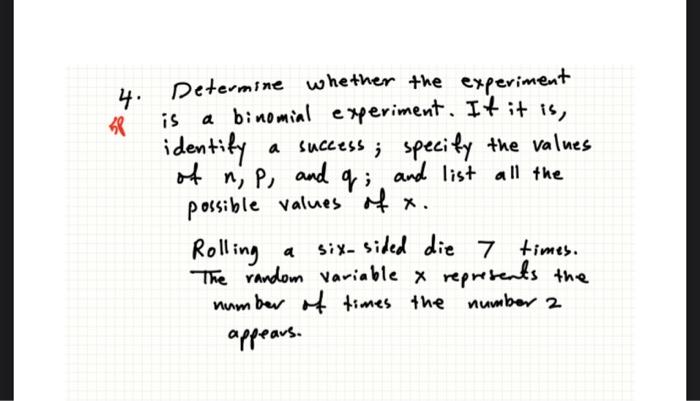 4. Determine whether the experiment
is a binomial experiment. If it is,
identify a success; specify the values
of n, p, and q; and list all the
possible values of x.
Rolling a six-sided die 7 times.
The random variable x represents the
number of times the number 2
appears.